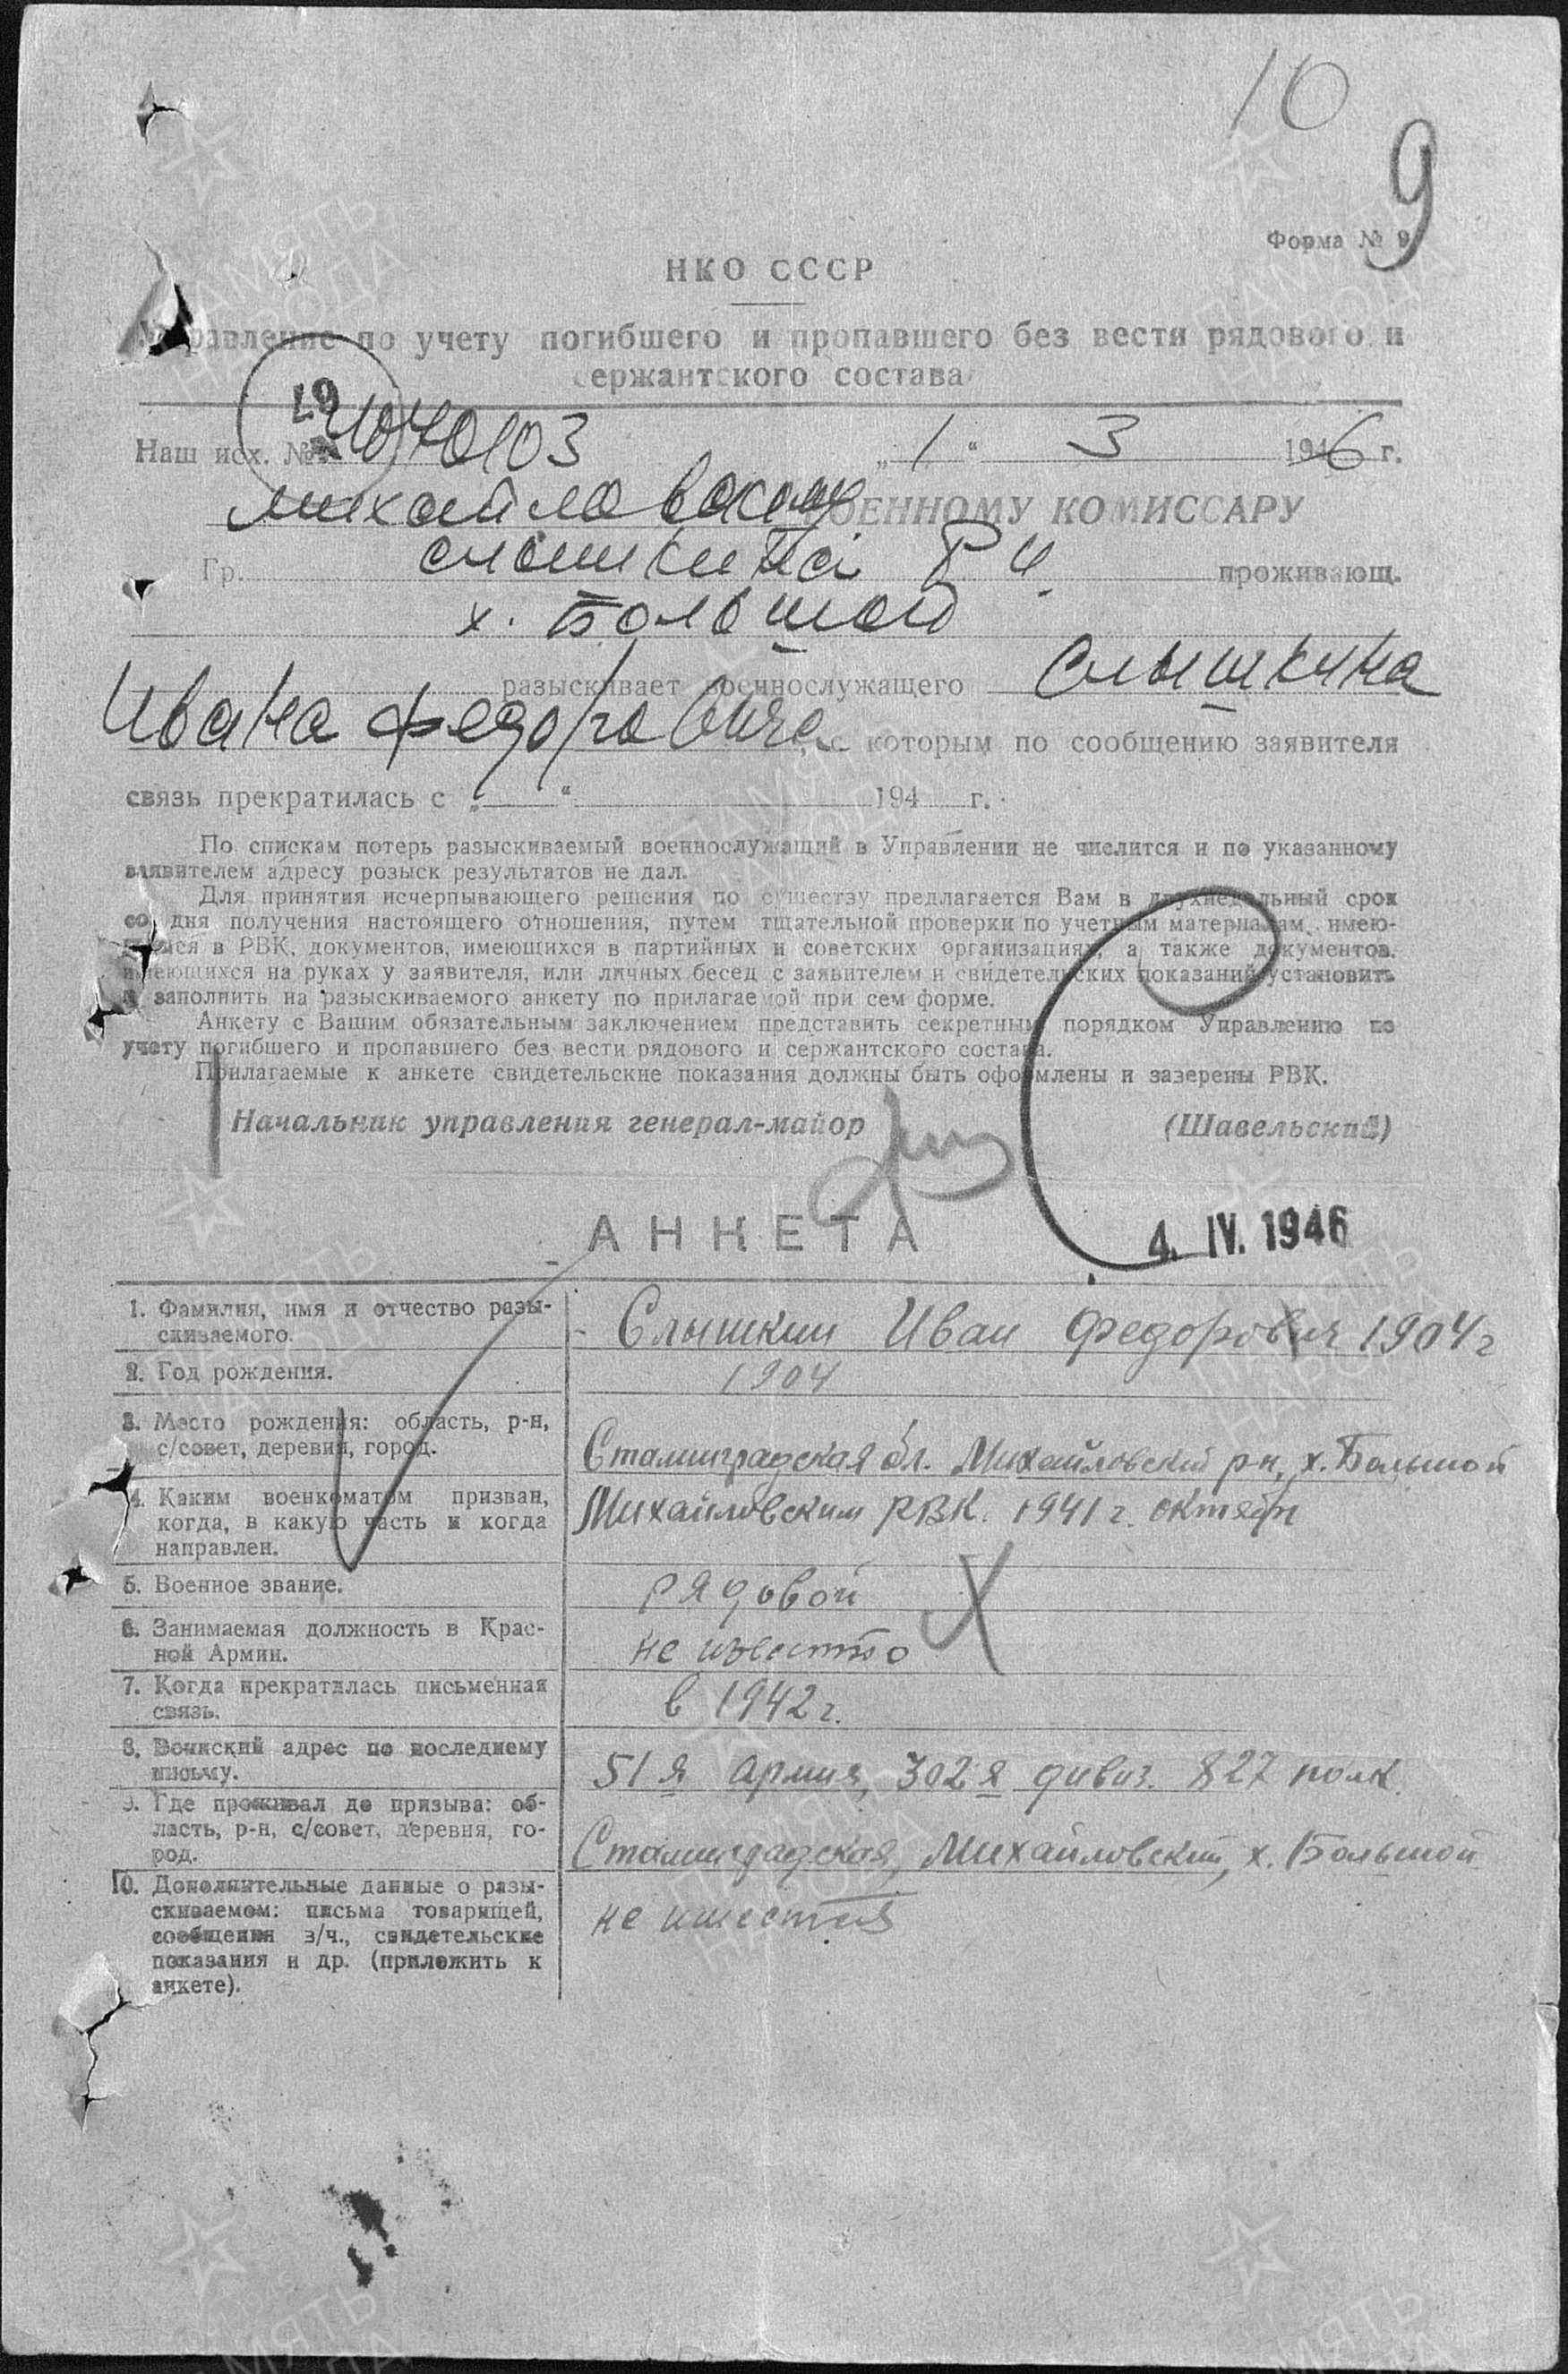 10
9
Форма № 9
НКО СССР
Управление по учету погибшего и пропавшего без вести рядового и
сержантского состава
67
Наш исх. № 40103 „1“ 3 1946 г.
Михайловскому ВОЕННОМУ КОМИССАРУ
Гр. Слышкина проживающ.
х. Большой
разыскивает военнослужащего Слышкина
Ивана Федоровича, с которым по сообщению заявителя
связь прекратилась с „ “ 194 г.
По спискам потерь разыскиваемый военнослужащий в Управлении не числится и по указанному
заявителем адресу розыск результатов не дал.
Для принятия исчерпывающего решения по существу предлагается Вам в двухнедельный срок
со дня получения настоящего отношения, путем тщательной проверки по учетным материалам, имею-
щимся в РВК, документов, имеющихся в партийных и советских организациях, а также документов,
имеющихся на руках у заявителя, или личных бесед с заявителем и свидетельских показаний установить
и заполнить на разыскиваемого анкету по прилагаемой при сем форме.
Анкету с Вашим обязательным заключением представить секретным порядком Управлению по
учету погибшего и пропавшего без вести рядового и сержантского состава.
Прилагаемые к анкете свидетельские показания должны быть оформлены и заверены РВК.
Начальник управления генерал-майор (Шавельский)
АНКЕТА
4. IV. 1946
1. Фамилия, имя и отчество разы-
скиваемого.
Слышкин Иван Федорович 1904 г
2. Год рождения.
1904
3. Место рождения: область, р-н,
с/совет, деревня, город.
Сталинградская обл. Михайловский р-н, х. Большой
4. Каким военкоматом призван,
когда, в какую часть и когда
направлен.
Михайловским РВК. 1941 г. октябрь
5. Военное звание.
рядовой
6. Занимаемая должность в Крас-
ной Армии.
не известно
7. Когда прекратилась письменная
связь.
в 1942 г.
8. Воинский адрес по последнему
письму.
51я армия, 302я дивиз. 827 полк
9. Где проживал до призыва: об-
ласть, р-н, с/совет, деревня, го-
род.
Сталинградская, Михайловский, х. Большой
10. Дополнительные данные о разы-
скиваемом: письма товарищей,
сообщения в/ч., свидетельские
показания и др. (приложить к
анкете).
не имеется
ПАМЯТЬ
НАРОДА